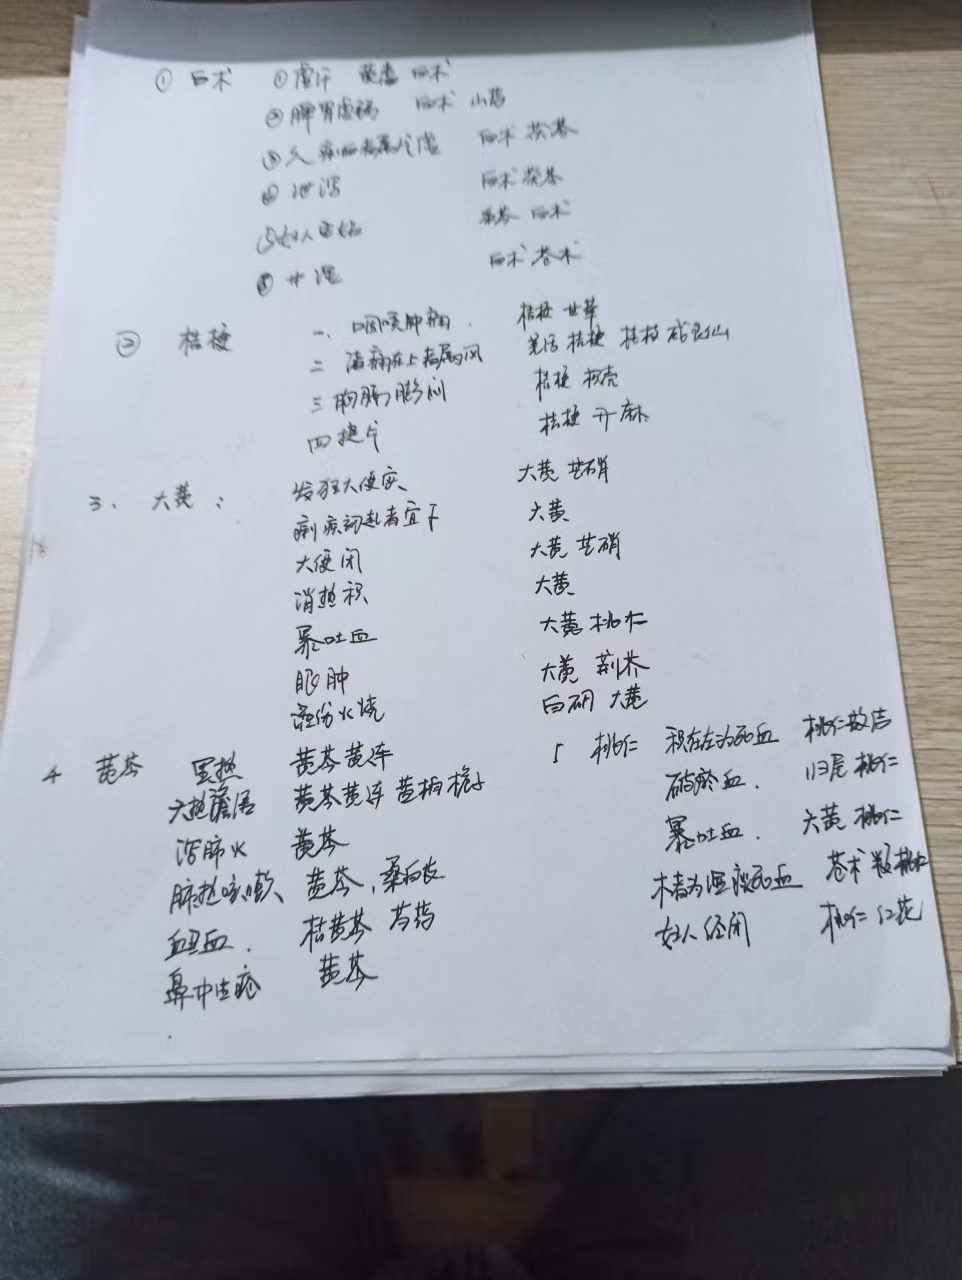 ① 白术 ①虚汗 黄芪 白术
②脾胃虚弱 白术 山药
③久病 属 虚 白术 茯苓
④泄泻 白术 茯苓
⑤妇人安胎 黄芩 白术
⑥中湿 白术 苍术
② 桔梗 一、咽喉肿痛. 桔梗 甘草
二 疮病在上者属风 羌活 桔梗 桂枝 威灵仙
三 胸膈膨闷 桔梗 枳壳
四 提气 桔梗 升麻
3. 大黄: 发狂大便实 大黄 芒硝
痢疾初起者宜下 大黄
大便闭 大黄 芒硝
消热积 大黄
暴吐血 大黄 桃仁
眼肿 大黄 荆芥
火烧 白矾 大黄
4 黄芩 里热 黄芩 黄连
大热谵语 黄芩 黄连 黄柏 栀子
泻肺火 黄芩
肺热咳嗽 黄芩、桑白皮
血 桔黄芩 芍药
鼻中生疮 黄芩
5 桃仁 积在左为死血 桃仁
破瘀血. 归尾 桃仁
暴吐血. 大黄 桃仁
木者为湿痰死血 苍术 桃仁
妇人经闭 桃仁 红花